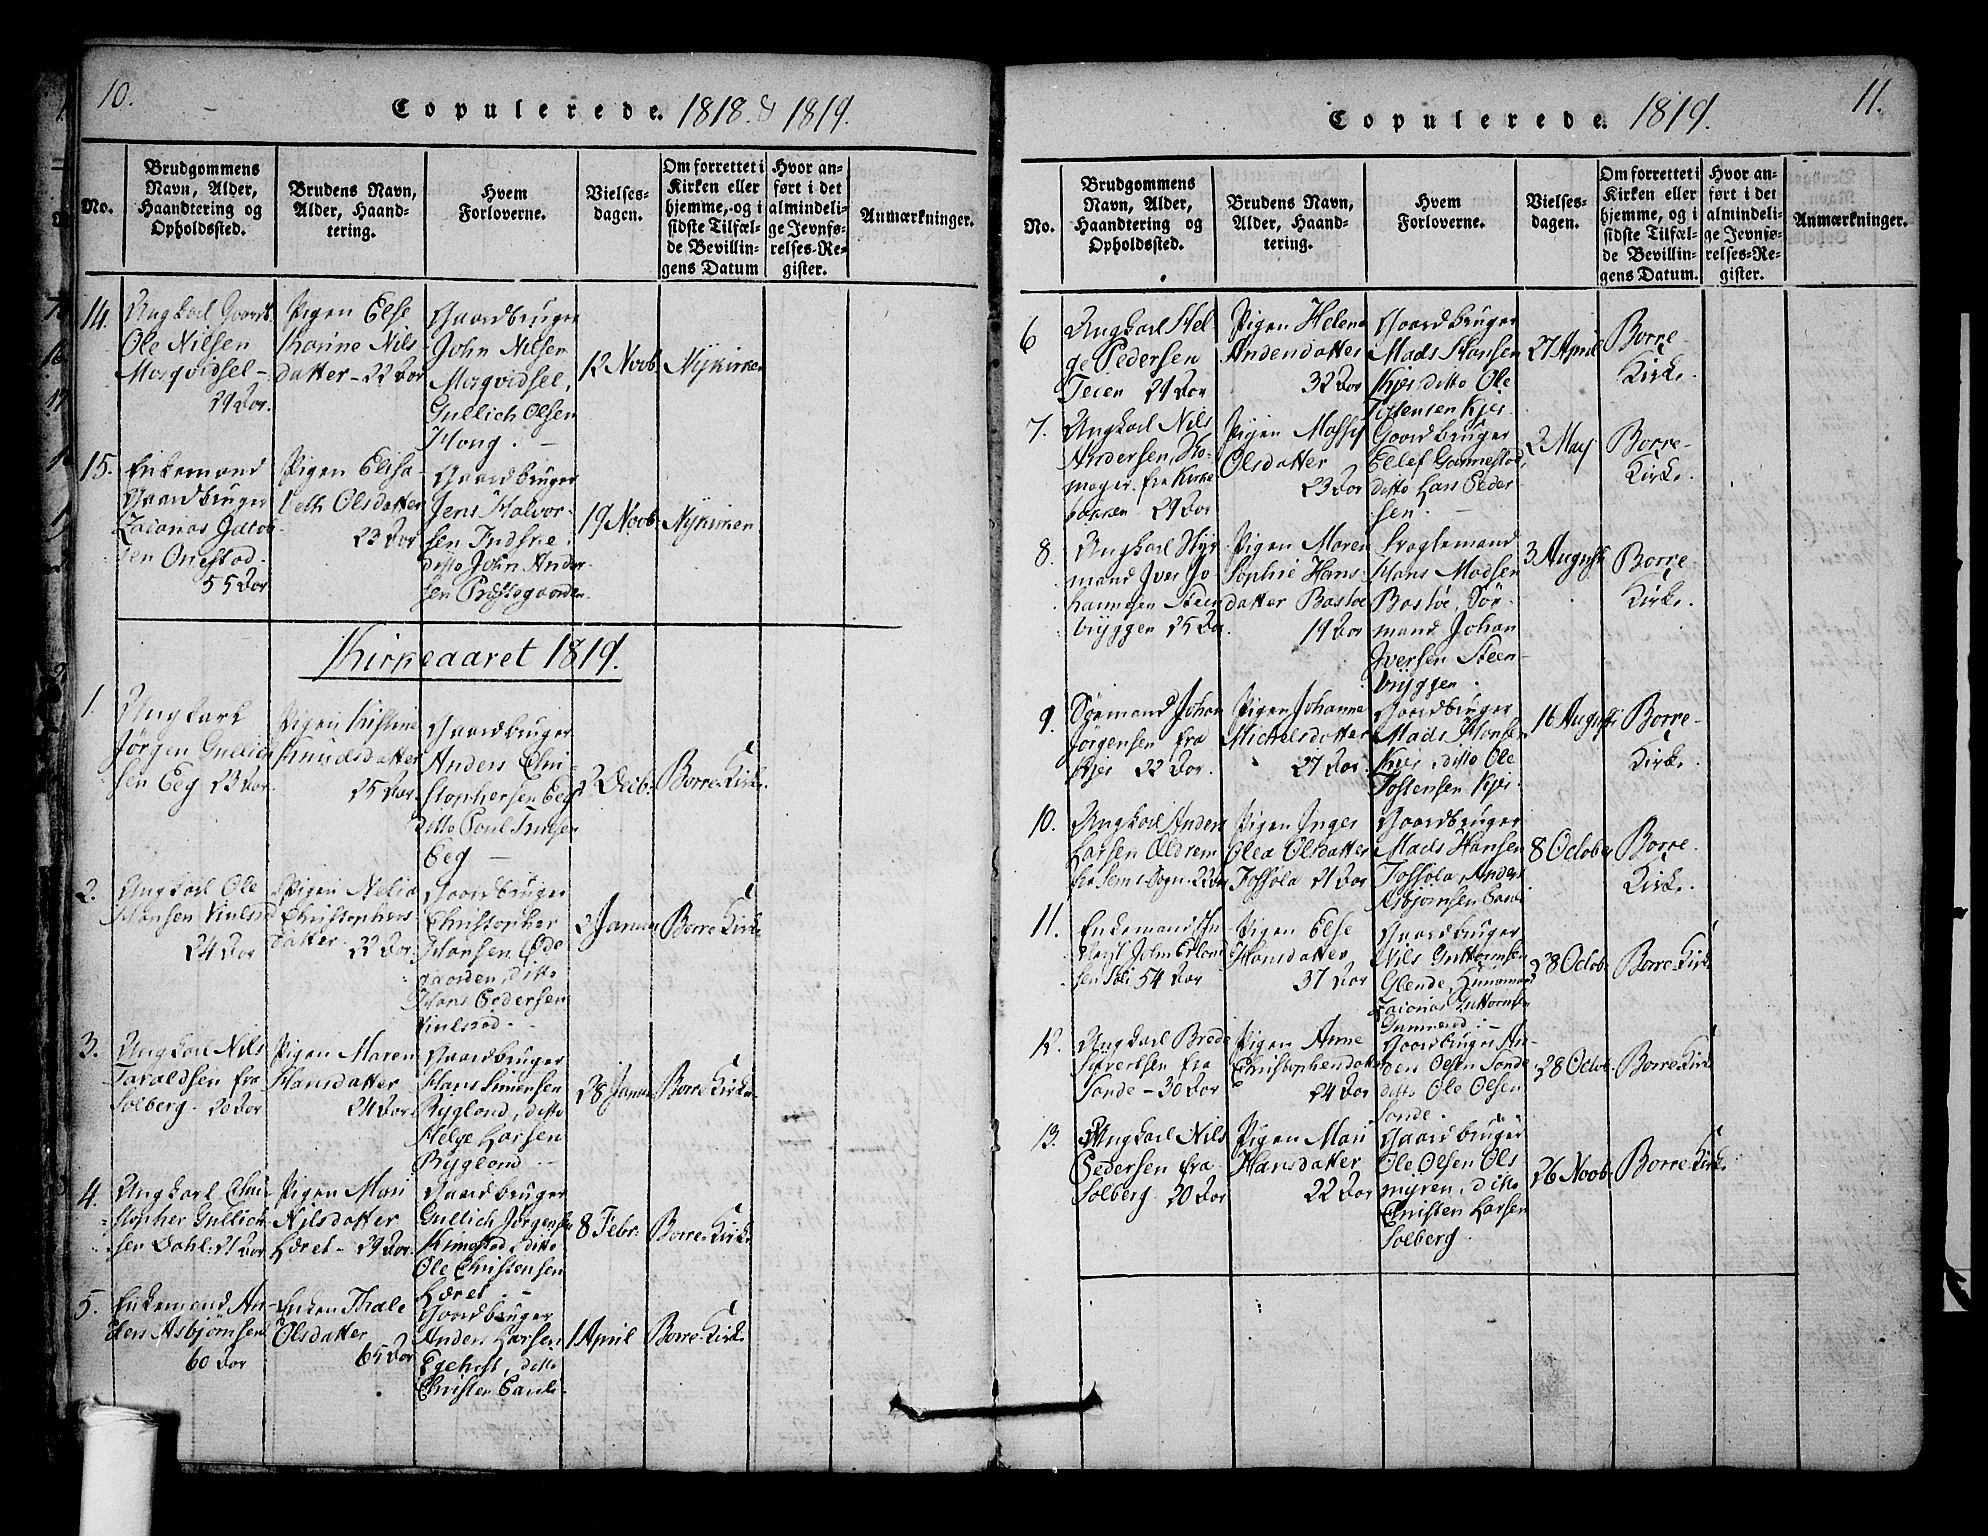 10.
Copulerede. 1818. & 1819.
No.
Brudgommens
Navn, Alder,
Haandtering og
Opholdssted.
Brudens Navn,
Alder, Haand-
tering.
Hvem
Forloverne.
Vielses-
dagen.
Om forrettet i
Kirken eller
hjemme, og i
sidste Tilfæl-
de Bevillin-
gens Datum
Hvor an-
ført i det
almindeli-
ge Jevnfø-
relses-Re-
gister.
Anmærkninger.
14.
Ungkarl Gaardb.
Ole Nilsen
29 Aar.
Pigen Else
Karine Nils
datter - 22 Aar
Gaardbruger
John Nilsen
Gullich Olsen
12 Novb.
Nykirken
15.
Enkemand
Gaardbruger
Zacarias Jacob
sen
55 Aar
Pigen Elisa-
beth Olsdatter
23 Aar
Gaardbruger
Jens Halvor-
sen
ditto John Ander-
sen Præstegaarden.
19 Novb.
Nykirken
Kirkeaaret 1819.
1.
Ungkarl
Jørgen Gullich
sen Eeg 23 Aar.
Pigen Kistine
Knudsdatter
25 Aar.
Gaardbruger
Anders Chri-
stophersen Eeg
ditto Poul
Eeg -
2 Decb.
Borre Kirke.
2.
Ungkarl Ole
Hansen
24 Aar
Pigen
Christophers
datter. 22 Aar.
Gaardbruger
Christopher
Hansen
gaarden, ditto
Hans Pedersen
2 Januar
Borre Kirke
3.
Ungkarl Nils
Taraldsen fra
Solberg. 20 Aar
Pigen Maren
Hansdatter
24 Aar.
Gaardbruger
Hans Simensen
Rygland, ditto
Helge Larsen
Rygland -
28 Januar
Borre Kirke.
4.
Ungkarl Chri-
stopher Gullich-
sen Dahl. 21 Aar
Pigen Mari
Nilsdatter
Læret - 29 Aar.
Gaardbruger
Gullich Jørgensen
ditto
Ole Christensen
Læret. -
8 Febr.
Borre Kirke
5.
Enkemand An-
ders Asbjørnsen
60 Aar
Enken Thale
Olsdatter
65 Aar
Gaardbruger
Anders Larsen
ditto
Christen
1 April
Borre Kirke
11.
Copulerede. 1819.
No.
Brudgommens
Navn, Alder,
Haandtering og
Opholdssted.
Brudens Navn,
Alder, Haand-
tering.
Hvem
Forloverne.
Vielses-
dagen.
Om forrettet i
Kirken eller
hjemme, og i
sidste Tilfæl-
de Bevillin-
gens Datum.
Hvor an-
ført i det
almindeli-
ge Jevnfø-
relses-Re-
gister.
Anmærkninger.
6
Ungkarl Hel
ge Pedersen
Teien 29 Aar
Pigen Helena
Andersdatter
32 Aar
Gaardbruger
Mads Hansen
Kjær ditto Ole
Tostensen Kjær.
27 April
Borre-
Kirke.
7.
Ungkarl Nils
Andersen, Sko-
mager. fra Kirke
bakken 29 Aar
Pigen
Olsdatter
23 Aar
Gaardbruger
Ellef Gannestad,
ditto Lars Peder
sen. -
2 May
Borre-
Kirke.
8.
Ungkarl Styr
mand Iver Jo
hannesen Steen
bryggen 25 Aar.
Pigen Maren
Sophie Hans-
datter Bastøe
19 Aar
Fragtemand
Hans Madsen
Bastøe, Sør-
mand Johan
Iversen Steen-
bryggen.
3 August
Borre-
Kirke.
9.
Sørmand Johan
Jørgensen fra
Kjær 22 Aar.
Pigen Johanne
Michelsdatter
27 Aar.
Gaardbruger
Mads Hansen
Kjær, ditto Ole
Tostensen Kjær.
16 August
Borre-
Kirke.
10.
Ungkarl Anders
Larsen
fra Sems Sogn. 22 Aar
Pigen Inger
Olea Olsdatter
21 Aar
Gaardbruger
Mads Hansen
Anders
Asbjørnsen
8 October
Borre-
Kirke.
11.
Enkemand
John Erland
sen 54 Aar
Pigen Else
Hansdatter
37 Aar
Gaardbruger
Nils Guttormsen
Glende,
Zacarias Guttormsen
28 Octob.
Borre Kirke
12.
Ungkarl Brede
Syvertsen fra
Sande - 30 Aar
Pigen Anne
Christophersdatt
24 Aar
Gaardbruger An-
ders Olsen Sande
ditto Ole Olsen
Sande.
28 Octob.
Borre Kirke
13.
Ungkarl Nils
Pedersen fra
Solberg. 20 Aar
Pigen Mari
Hansdatter
22 Aar
Gaardbruger
Ole Olsen Ols
myren, ditto
Christen Larsen
Solberg.
26 Novb.
Borre Kirke.